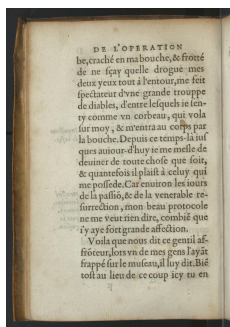 DE L'OPERATION
he, craché en ma bouche, & frotté
de ne sçay quelle drogue mes
deux yeux tout à l'entour, me feit
spectateur d'vne grande trouppe
de diables, d'entre lesquels ie sen-
ty comme vn corbeau, qui vola
sur moy, & m'entra au corps par
la bouche. Depuis ce temps-là ius
ques auiour-d'huy ie me mesle de
deuiner de toute chose que soit,
& quantefois il plaist à celuy qui
me possede. Car enuiron les iours
de la passiõ, & de la venerable re-
surrection, mon beau protocole
ne me veut rien dire, combiẽ que
i'y aye fort grande affection.
Voila que nous dit ce gentil af-
frõteur, lors vn de mes gens l'ayãt
frappé sur le museau, il luy dit. Biẽ
tost au lieu de ce coup icy tu en